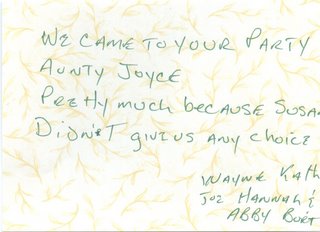 WE CAME TO YOUR PARTY
AUNTY JOYCE
PRETTY much because SUSA
DIDN'T give us ANY choice
WAYNE KATH
JOE HANNAH &
ABBY BURT